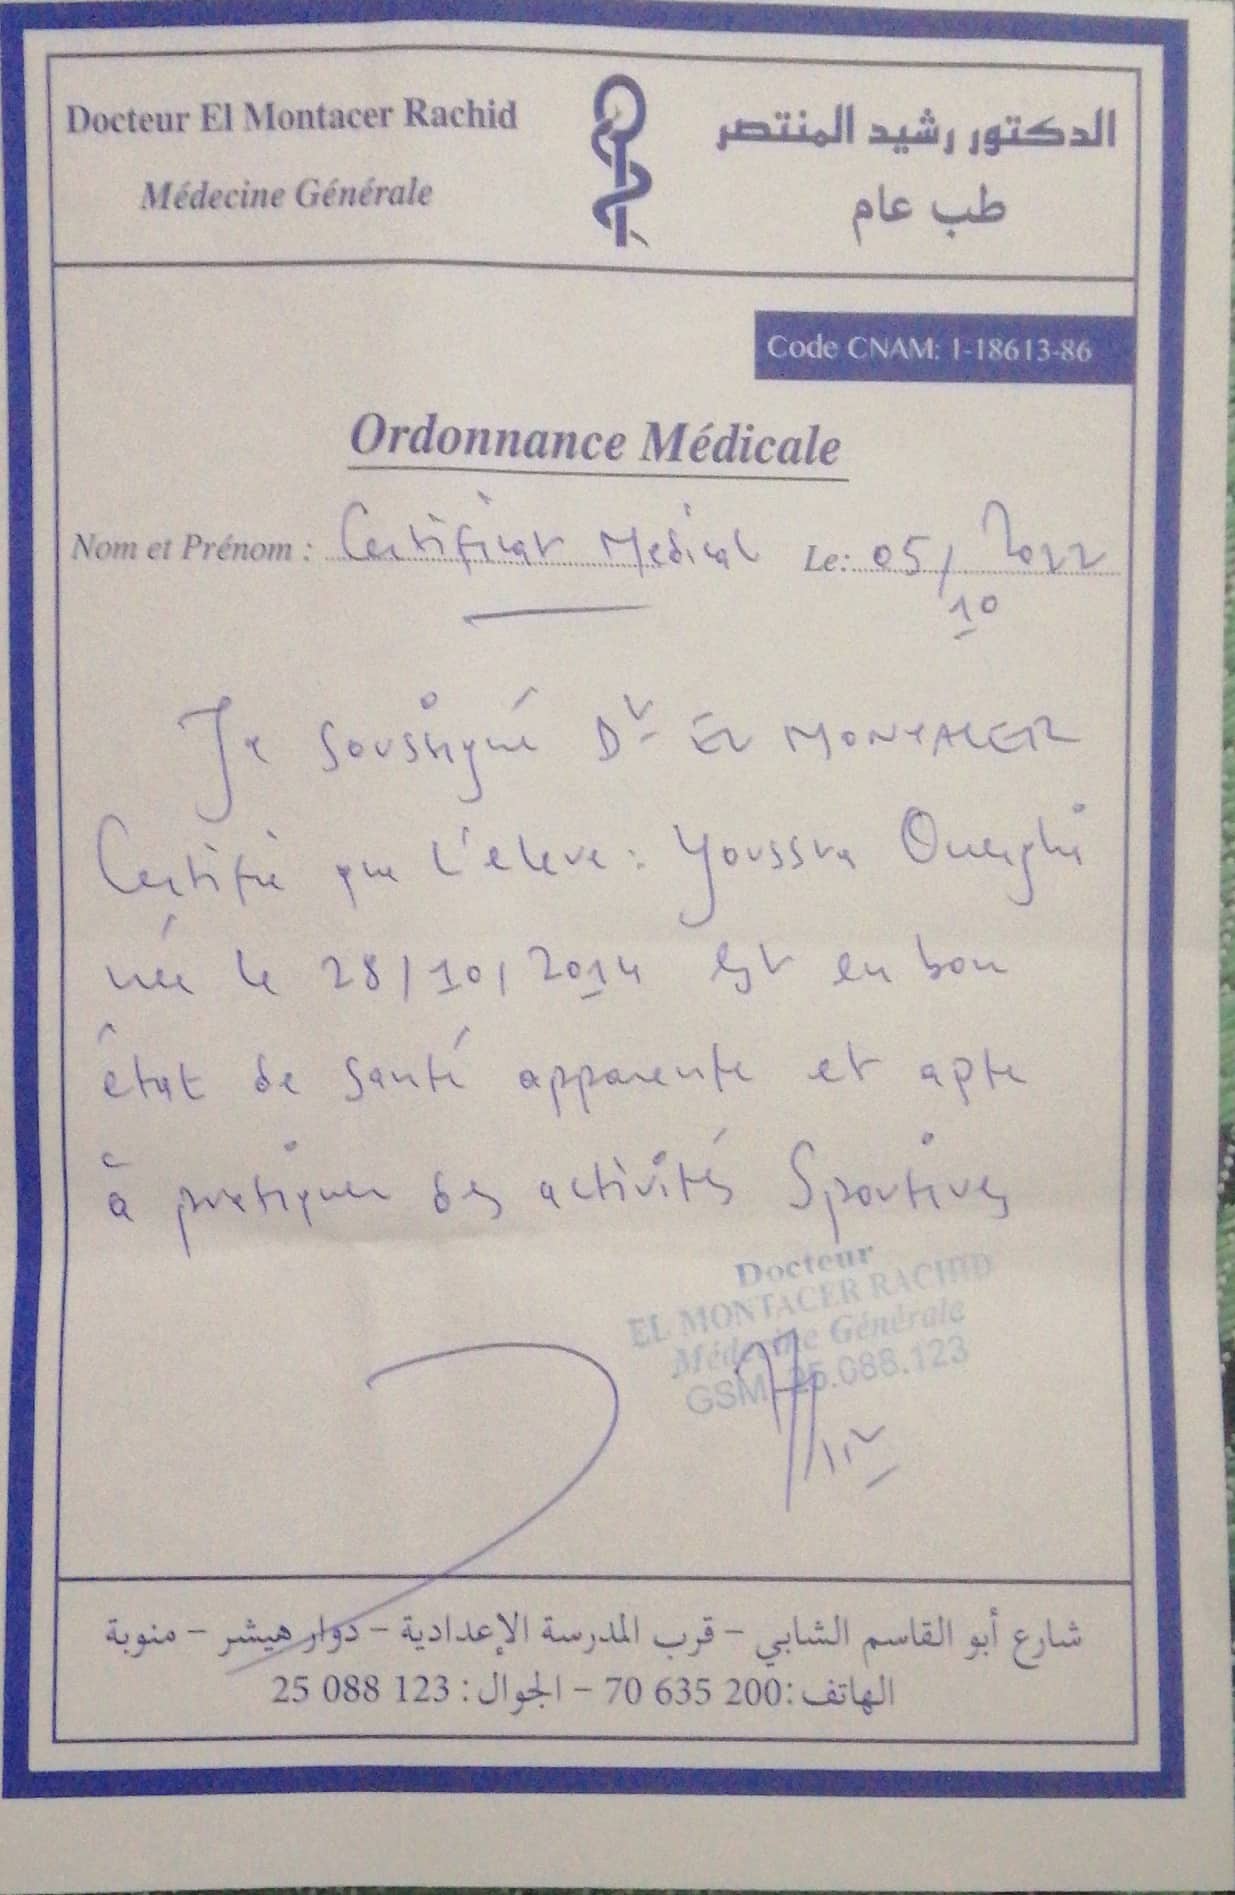 Docteur El Montacer Rachid
Médecine Générale
الدكتور رشيد المنتصر
طب عام
Code CNAM: 1-18613-86
Ordonnance Médicale
Nom et Prénom : Certificat Medical Le: 05/10/2022
Je soussigné Dr EL MONTACER
Certifie que l'eleve : Youssra Oueghi
née le 28/10/2014 est en bon
état de santé apparente et apte
à pratiquer des activités Sportives
Docteur
EL MONTACER RACHID
Médecine Générale
GSM: 25.088.123
شارع أبو القاسم الشابي - قرب المدرسة الإعدادية - دوار هيشر - منوبة
الهاتف: 200 635 70 - الجوال: 123 088 25